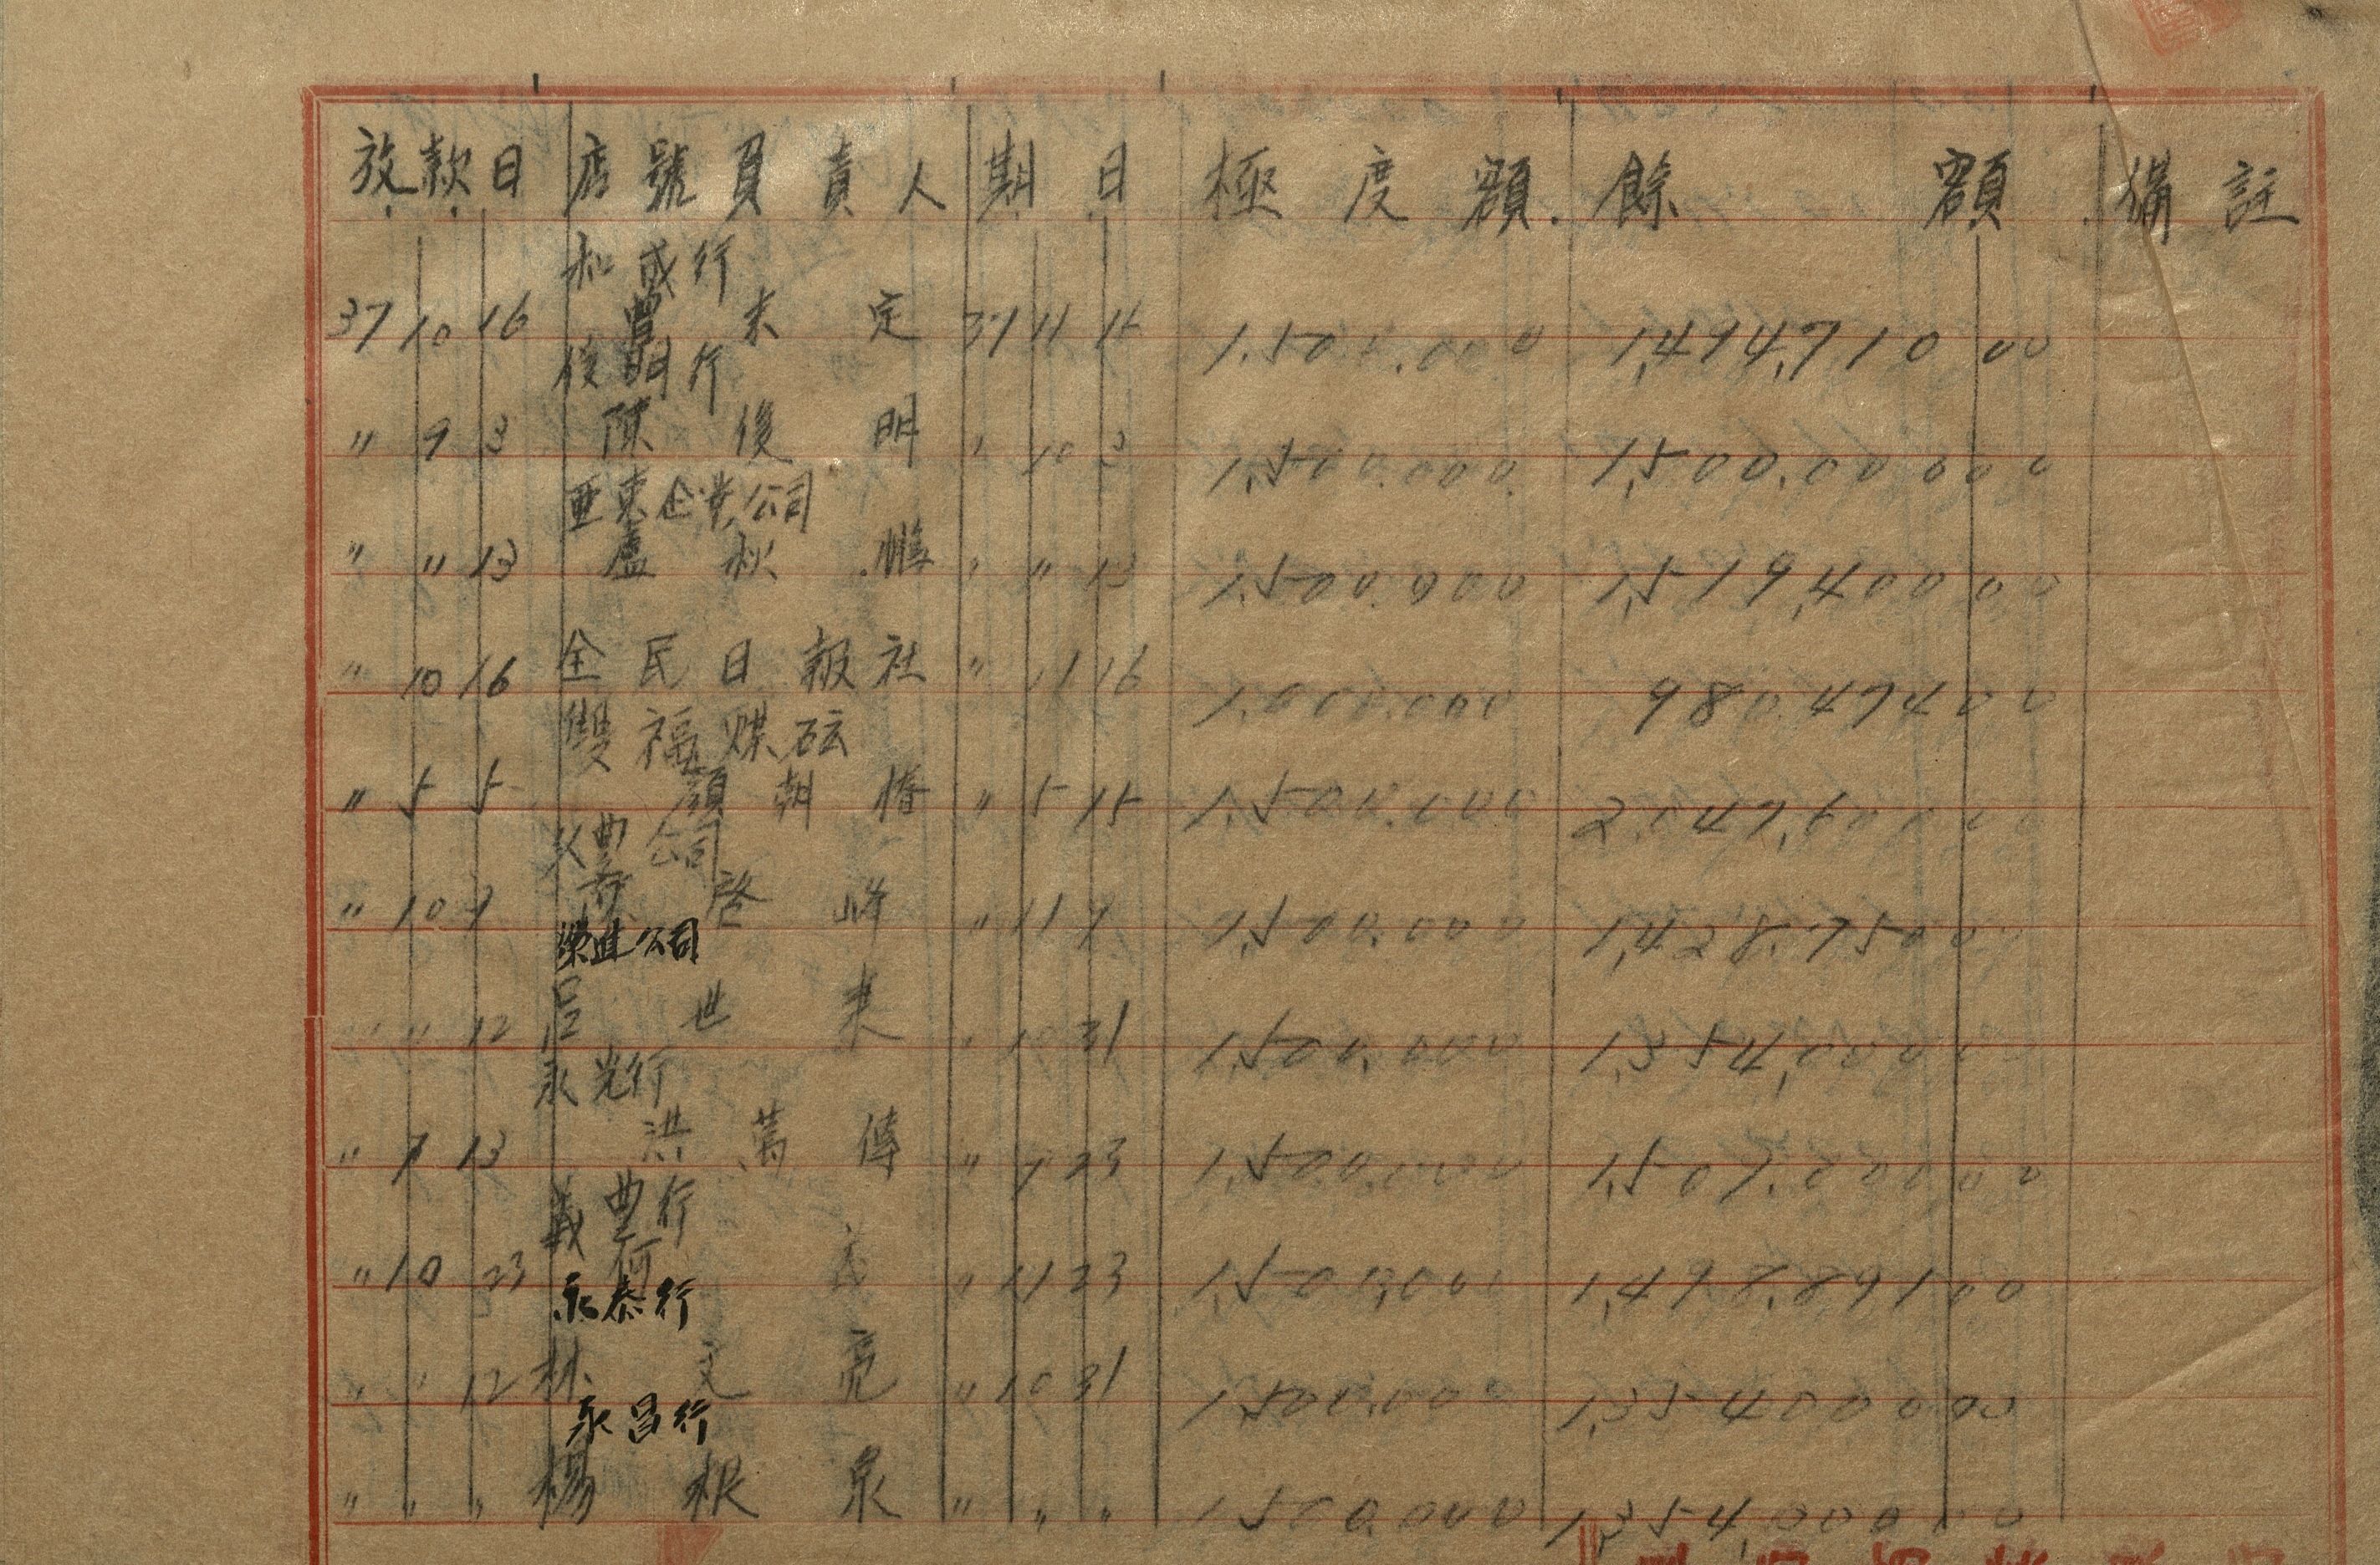 放款日 店號負責人 期日 極度額 餘額 備註
和成行
37 10 16 曹未定 37 11 15 1,500,000 1,494,710 00
俊明行
〃 9 3 陳俊明 〃 10 3 1,500,000 1,500,000 00
亜東企業公司
〃 〃 13 盧秋 〃 〃 13 1,500,000 1,519,400 00
〃 10 16 全民日報社 〃 11 16 1,000,000 980,474 00
雙福煤砿
〃 5 5 顏朝椿 〃 5 15 1,500,000
公司
〃 10 9 啓峰 〃 11 9 1,500,000 1,428,750 0
榮進公司
〃 〃 12 呂世来 〃 10 31 1,500,000 1,354,000 00
永光行
〃 7 13 洪萬傳 〃 7 23 1,500,000
義豊行
〃 10 23 何義 〃 11 23 1,500,000 1,498,891 00
永泰行
〃 〃 12 林文亮 〃 10 31 1,500,000 1,354,000 00
永昌行
〃 〃 〃 楊根泉 〃 〃 〃 1,500,000 1,354,000 00